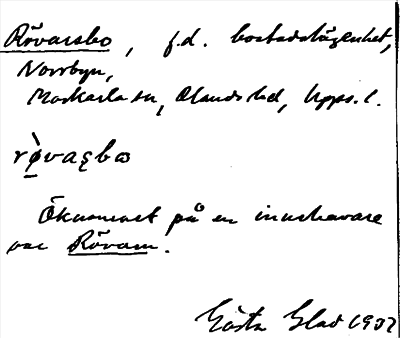 Rövarsbo, f.d. bostadslägenhet,
Norrbyn,
Morkarla sn, Olands hd, Upps. l.
rø̀vaʂbɷ
Öknamnet på en innehavare
var Rövarn.
Gösta Glad 1932